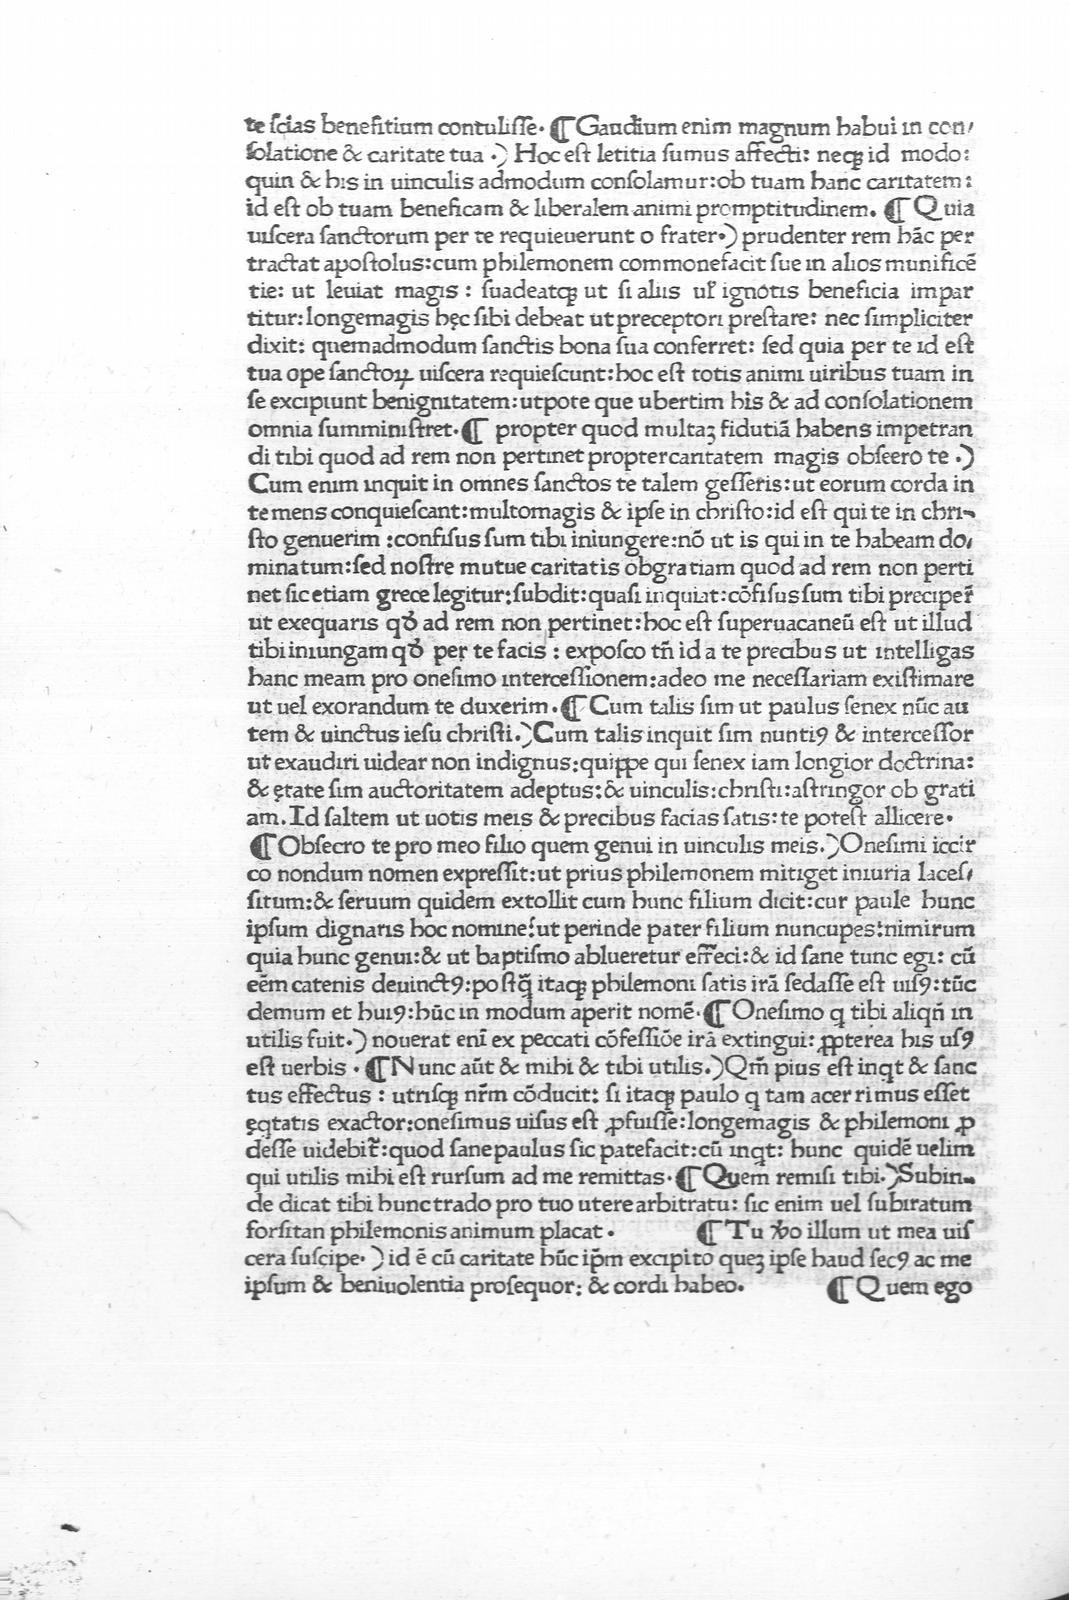 te ſcias benefitium contuliſſe. ¶ Gaudium enim magnum habui in con/
ſolatione & caritate tua .) Hoc eſt letitia ſumus affecti: neqꝫ id modo:
quin & his in uinculis admodum conſolamur: ob tuam hanc caritatem:
id eſt ob tuam beneficam & liberalem animi promptitudinem. ¶ Quia
uiſcera ſanctorum per te requieuerunt o frater.) prudenter rem hãc per
tractat apoſtolus: cum philemonem commonefacit ſue in alios munificẽ
tie: ut leuiat magis: ſuadeatqꝫ ut ſi aliis uł ignotis beneficia impar
titur: longemagis hęc ſibi debeat ut preceptori preſtare: nec ſimpliciter
dixit: quemadmodum ſanctis bona ſua conferret: ſed quia per te id eſt
tua ope ſanctoꝝ uiſcera requieſcunt: hoc eſt totis animi uiribus tuam in
ſe excipiunt benignitatem: utpote que ubertim his & ad conſolationem
omnia ſumminiſtret. ¶ propter quod multaꝫ fidutiã habens impetran
di tibi quod ad rem non pertinet propter caritatem magis obſecro te .)
Cum enim inquit in omnes ſanctos te talem geſſeris: ut eorum corda in
te mens conquieſcant: multomagis & ipſe in chriſto: id eſt qui te in chri-
ſto genuerim : confiſus ſum tibi iniungere: nõ ut is qui in te habeam do/
minatum: ſed noſtre mutue caritatis ob gratiam quod ad rem non perti
net ſic etiam grece legitur: ſubdit: quaſi inquiat: cõfiſus ſum tibi precipeř
ut exequaris qđ ad rem non pertinet: hoc eſt ſuperuacaneũ eſt ut illud
tibi iniungam qđ per te facis : expoſco tñ id a te precibus ut intelligas
hanc meam pro oneſimo interceſſionem: adeo me neceſſariam exiſtimare
ut uel exorandum te duxerim. ¶ Cum talis ſim ut paulus ſenex nũc au
tem & uinctus ieſu chriſti.) Cum talis inquit ſim nuntiꝯ & interceſſor
ut exaudiri uidear non indignus: quippe qui ſenex iam longior doctrina:
& ętate ſim auctoritatem adeptus: & uinculis: chriſti: aſtringor ob grati
am. Id ſaltem ut uotis meis & precibus facias ſatis: te poteſt allicere.
¶ Obſecro te pro meo filio quem genui in uinculis meis.) Oneſimi iccir
co nondum nomen expreſſit: ut prius philemonem mitiget iniuria laceſ/
ſitum: & ſeruum quidem extollit cum hunc filium dicit: cur paule hunc
ipſum dignaris hoc nomine: ut perinde pater filium nuncupes: nimirum
quia hunc genui: & ut baptiſmo ablueretur effeci: & id ſane tunc egi: cũ
eẽm catenis deuinctꝯ: poſtq̃ itaqꝫ philemoni ſatis irã ſedaſſe eſt uiſꝯ: tũc
demum et huiꝯ: hũc in modum aperit nomẽ. ¶ Oneſimo q tibi aliqñ in
utilis fuit.) nouerat eni ex peccati cõfeſſiõe irã extingui: ꝓpterea his uſꝯ
eſt uerbis . ¶ Nunc aũt & mihi & tibi utilis.) Qm̃ pius eſt inqt & ſanc
tus effectus : utriſqꝫ nr̃m cõducit: ſi itaqꝫ paulo q tam acerrimus eſſet
ęqtatis exactor: oneſimus uiſus eſt ꝓfuiſſe: longemagis & philemoni ꝓ
deſſe uidebit̃: quod ſane paulus ſic patefacit: cũ inqt: hunc quidẽ uelim
qui utilis mihi eſt rurſum ad me remittas. ¶ Quem remiſi tibi.) Subin-
de dicat tibi hunc trado pro tuo utere arbitratu: ſic enim uel ſubiratum
forſitan philemonis animum placat . ¶ Tu ꝟo illum ut mea uiſ
cera ſuſcipe. ) id ẽ cũ caritate hũc ip̃m excipito queꝫ ipſe haud ſecꝯ ac me
ipſum & beniuolentia proſequor: & cordi habeo. ¶ Quem ego